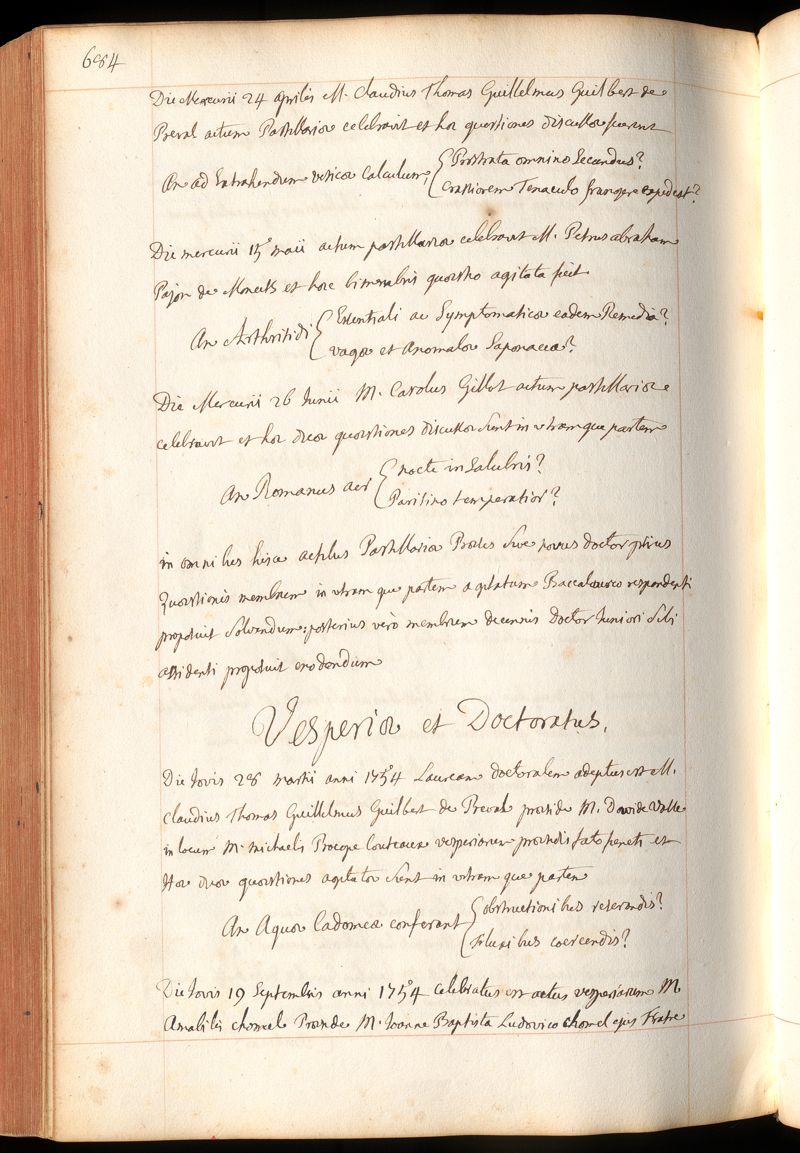 684
Die Mercurii 24 aprilis M. Claudius Thomas Guillelmus Guilbert de
Preval actum Pastillariæ celebravit et hæ quæstiones discussæ fuerunt
An ad Extrahendum vesicæ Calculum, { Prostrata omnino Secandus?
Crassiorem Tenaculo frangere expediat?
Die mercurii 15° maii actum pastillariæ celebravit M. Petrus abraham
Pajon de Moncets et hæc bimembris quæstio agitata fuit
An Arthritidi { Essentiali ac Symptomaticæ eadem Remedia?
vagæ et Anomalæ Saponacea?
Die Mercurii 26 Junii M. Carolus Gillot actum pastillariæ
celebravit et hæ duæ quæstiones discussæ sunt in utramque partem
An Romanus aer { nocte insalubris?
Parisino temperatior?
in omnibus hisce actibus Pastillariæ Præses sive novus doctor prius
Quæstionis membrum in utramque partem agitatum Baccalaureo respondenti
proposuit solvendum: posterius vero membrum decennis Doctor Juniori sibi
assidenti proposuit enodandum
Vesperiæ et Doctoratus.
Die Jovis 28 martii anni 1754 Lauream doctoralem adeptus est M.
Claudius Thomas Guillelmus Guilbert de Preval præside M. Davide Vasse
in locum M. michaelis Procope Couteaux vesperiarum præsidis fato functi et
Hæ duæ quæstiones agitatæ sunt in utramque partem
An Aquæ Cadomeæ conferant { obstructionibus reserandis?
Fluxibus coercendis?
Die Jovis 19 Septembris anni 1754 celebratus est actus vesperiarum M
Amabilis chomel Præside M. Joanne Baptista Ludovico chomel ejus Fratre